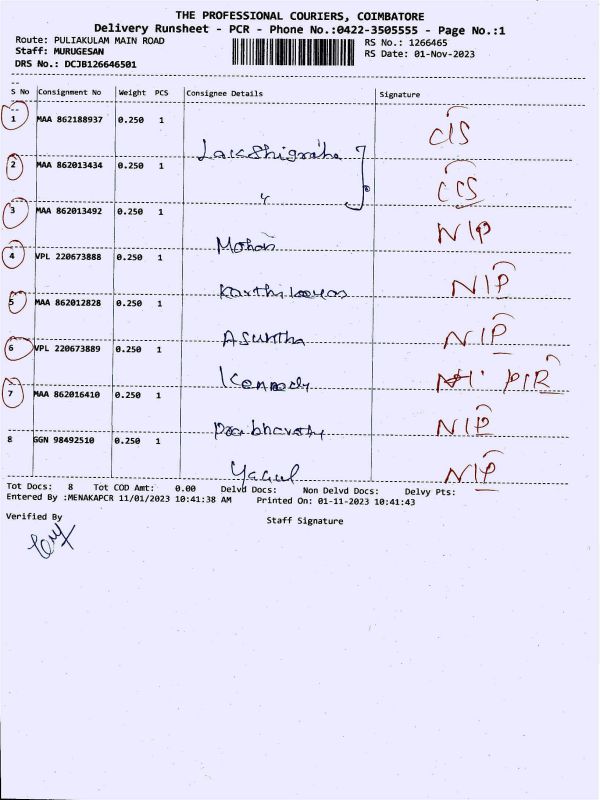 THE PROFESSIONAL COURIERS, COIMBATORE
Delivery Runsheet - PCR - Phone No.:0422-3505555 - Page No.:1
Route: PULIAKULAM MAIN ROAD RS No.: 1266465
Staff: MURUGESAN RS Date: 01-Nov-2023
DRS No.: DCJB126646501
S No Consignment No Weight PCS Consignee Details Signature
1 MAA 862188937 0.250 1
2 MAA 862013434 0.250 1
3 MAA 862013492 0.250 1 Mohan NIP
4 VPL 220673888 0.250 1 NIP
5 MAA 862012828 0.250 1 Asuntha NIP
6 VPL 220673889 0.250 1 Kennedy
7 MAA 862016410 0.250 1 NIP
8 GGN 98492510 0.250 1 NIP
Tot Docs: 8 Tot COD Amt: 0.00 Delvd Docs: Non Delvd Docs: Delvy Pts:
Entered By :MENAKAPCR 11/01/2023 10:41:38 AM Printed On: 01-11-2023 10:41:43
Verified By Staff Signature